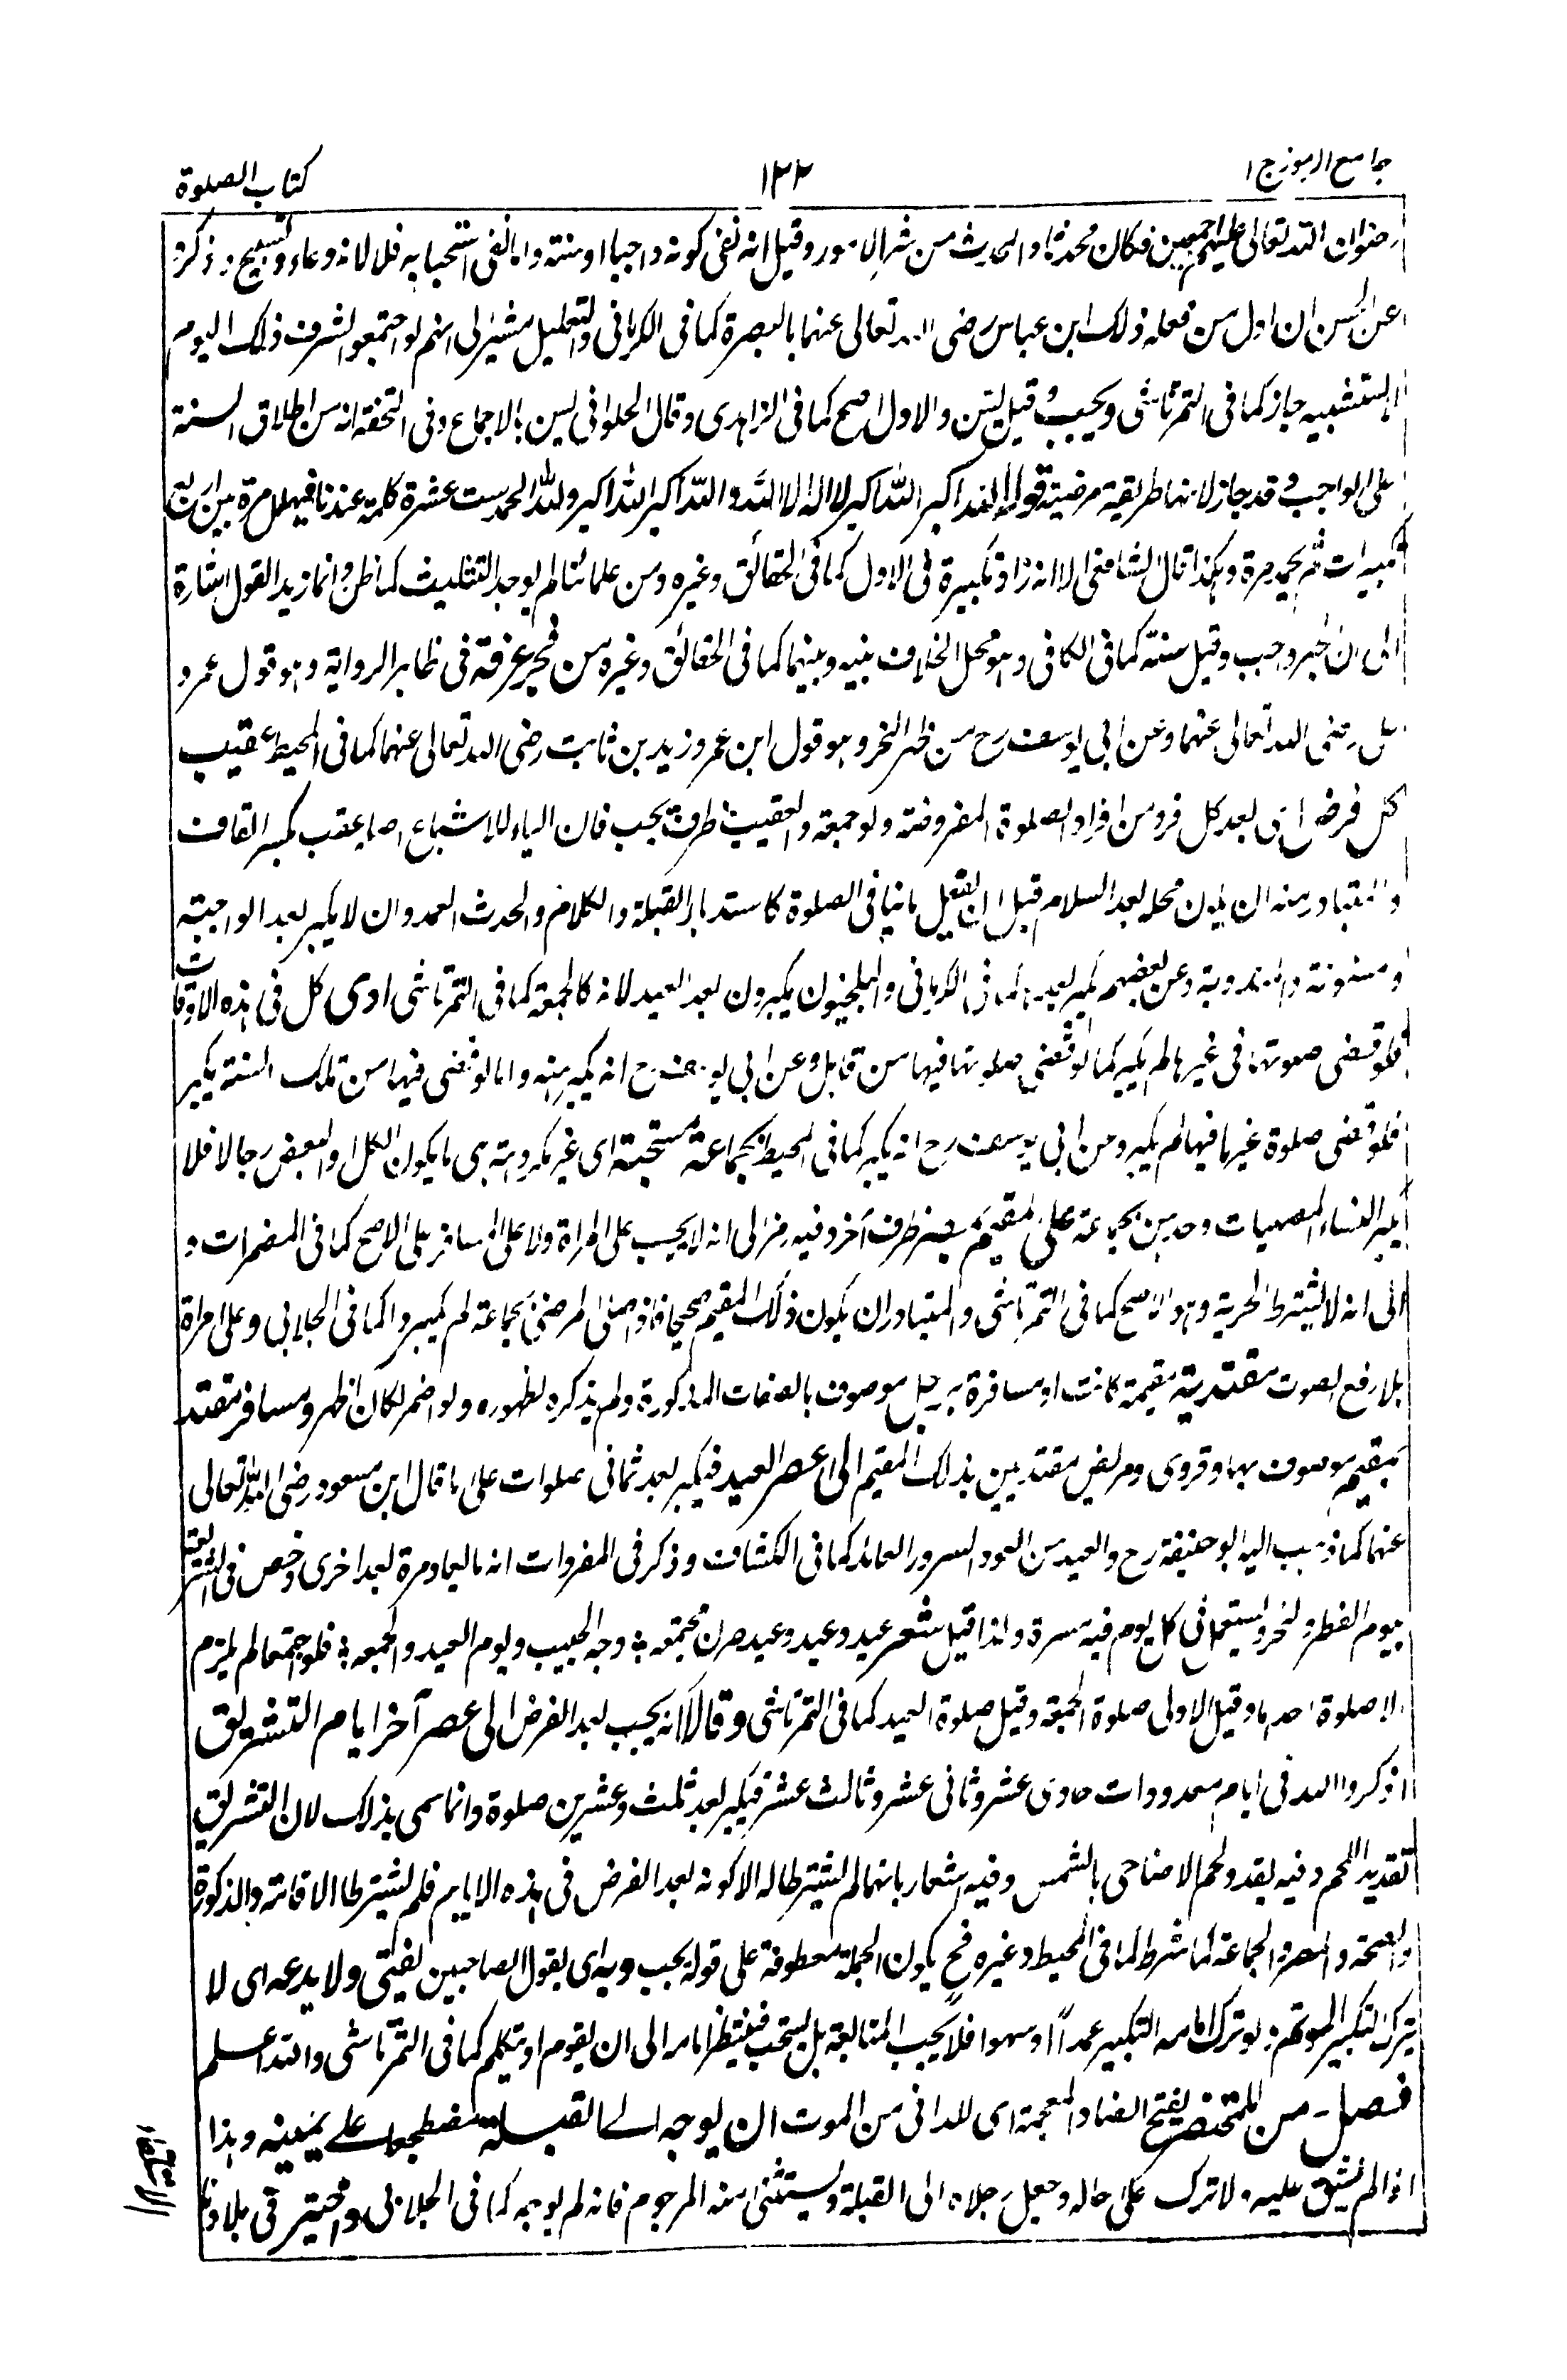 جامع الرموز ج ۱
۱۳۲
كتاب الصلوة
رضوان الله تعالى عليهم اجمعين فكان محدثا والمحدث من شر الامور وقيل انه نفى كونه واجبا او سنة واما نفى استحبابه فلا لانه دعاء وتسبيح وذكر
عن الحسن ان اول من فعله ذلك ابن عباس رضى الله تعالى عنهما بالبصرة كما فى الكرمانى والتعليل مشير الى انهم لو اجتمعوا لشرف ذلك اليوم
لا للتشبيه جاز كما فى التمرتاشى ويجب وقيل يسن والاول اصح كما فى الزاهدى وقال الحلوانى يسن بالاجماع وفى التحفة انه من اطلاق السنة
على الواجب وقد جاز لانها طريقة مرضية قوله الله اكبر الله اكبر لا اله الا الله والله اكبر الله اكبر ولله الحمد ست عشرة كلمة عندنا فيهلل مرة بين اربع
تكبيرات ثم يحمد مرة وهكذا قال الشافعى الا انه زاد تكبيرة فى الاول كما فى الحقائق وغيره ومن علمائنا لم يوجد التثليث كما ظن وانما زيد القول اشارة
الى ان الجهر واجب وقيل سنة كما فى الكافى وهو محل الخلاف بينه وبينهما كما فى الحقائق وغيره من فجر عرفة فى ظاهر الرواية وهو قول عمر و
على رضى الله تعالى عنهما وعن ابى يوسف رح من ظهر النحر وهو قول ابن عمر وزيد بن ثابت رضى الله تعالى عنهما كما فى المحيط عقيب
كل فرض اى بعد كل فرد من افراد الصلوة المفروضة ولو جمعة والعقيب ظرف يجب فان الياء للاشباع اصله عقب بكسر القاف
والمتبادر منه ان يكون محله بعد السلام قبل ان يفعل ما ينافى الصلوة كاستدبار القبلة والكلام والحدث العمد وان لا يكبر بعد الواجبة
ومسنونة والمندوبة وعن بعضهم يكبر بعد كما فى الكرمانى والبلخيون يكبرون بعد العيد لانه كالجمعة كما فى التمرتاشى ادى كل فى هذه الاوقات
فلو قضى صلوتها فى غيرها لم يكبر كما لو قضى صلوتها فيها من قابل وعن ابى يوسف رح انه يكبر فيه واما لو قضى فيها من تلك السنة يكبر
فلو قضى صلوة غيرها فيها لم يكبر وعن ابى يوسف رح انه يكبر كما فى المحيط بجماعة مستحبة اى غير مكروهة هى ما يكون الكل او البعض رجالا فلا
يكبر النساء المصليات وحدهن بجماعة على المقيم بمصر ظرف آخر وفيه رمز الى انه لا يجب على المراة ولا على المسافر على الاصح كما فى المضمرات و
الى انه لا يشترط الحرية وهو الاصح كما فى التمرتاشى والمتبادر ان يكون ذلك المقيم صحيحا فاذا صلى المرضى بجماعة لم يكبروا كما فى الجلابى وعلى امراة
بلا رفع الصوت مقتدية مقيمة كانت او مسافرة برجل موصوف بالصفات المذكورة ولم يذكره لظهوره ولو اضمر لكان اظهر ومسافر مقتد
بمقيم موصوف بها وقروى ومريض مقتديين بذلك المقيم الى عصر العيد فيكبر بعد ثمانى صلوات على ما قال ابن مسعود رضى الله تعالى
عنهما كما ذهب اليه ابو حنيفة رح والعيد من العود السرور العائد كما فى الكشاف وذكر فى المفردات انه ما يعاود مرة بعد اخرى وخص فى الشريعة
بيوم الفطر والنحر واستعمل فى كل يوم فيه مسرة ولذا قيل شعر عيد وعيد وعيد صرن مجتمعة ؛ وجه الحبيب ويوم العيد والجمعه ؛ فلو اجتمعا لم يلزم
الا صلوة احدهما وقيل الاولى صلوة الجمعة وقيل صلوة العيد كما فى التمرتاشى وقالا انه يجب بعد الفرض الى عصر آخر ايام التشريق
اذكروا الله فى ايام معدودات حادى عشر وثانى عشر وثالث عشر فيكبر بعد ثلث وعشرين صلوة وانما سمى بذلك لان التشريق
تقديد اللحم وفيه يقدد لحم الاضاحى بالشمس وفيه اشعار بانهما لم يشترطا له الا كونه بعد الفرض فى هذه الايام فلم يشترطا الاقامة والذكورة
والصحة والمصر والجماعة كما شرط كما فى المحيط وغيره فح يكون الجملة معطوفة على قوله يجب وبه اى بقول الصاحبين يفتى ولا يدعه اى لا
يترك التكبير المؤتم ولو ترك امامه التكبير عمدا او سهوا فلا يجب المتابعة بل يستحب فينتظر امامه الى ان يقوم او يتكلم كما فى التمرتاشى والله اعلم
فصل من المحتضر بفتح الضاد المعجمة اى للدانى من الموت ان يوجه الى القبلة مضطجعا على يمينه وهذا
اذا لم يشق عليه والا ترك على حاله وجعل رجلاه الى القبلة ويستثنى منه المرجوم فانه لم يوجه كما فى الجلابى واختير فى بلادنا